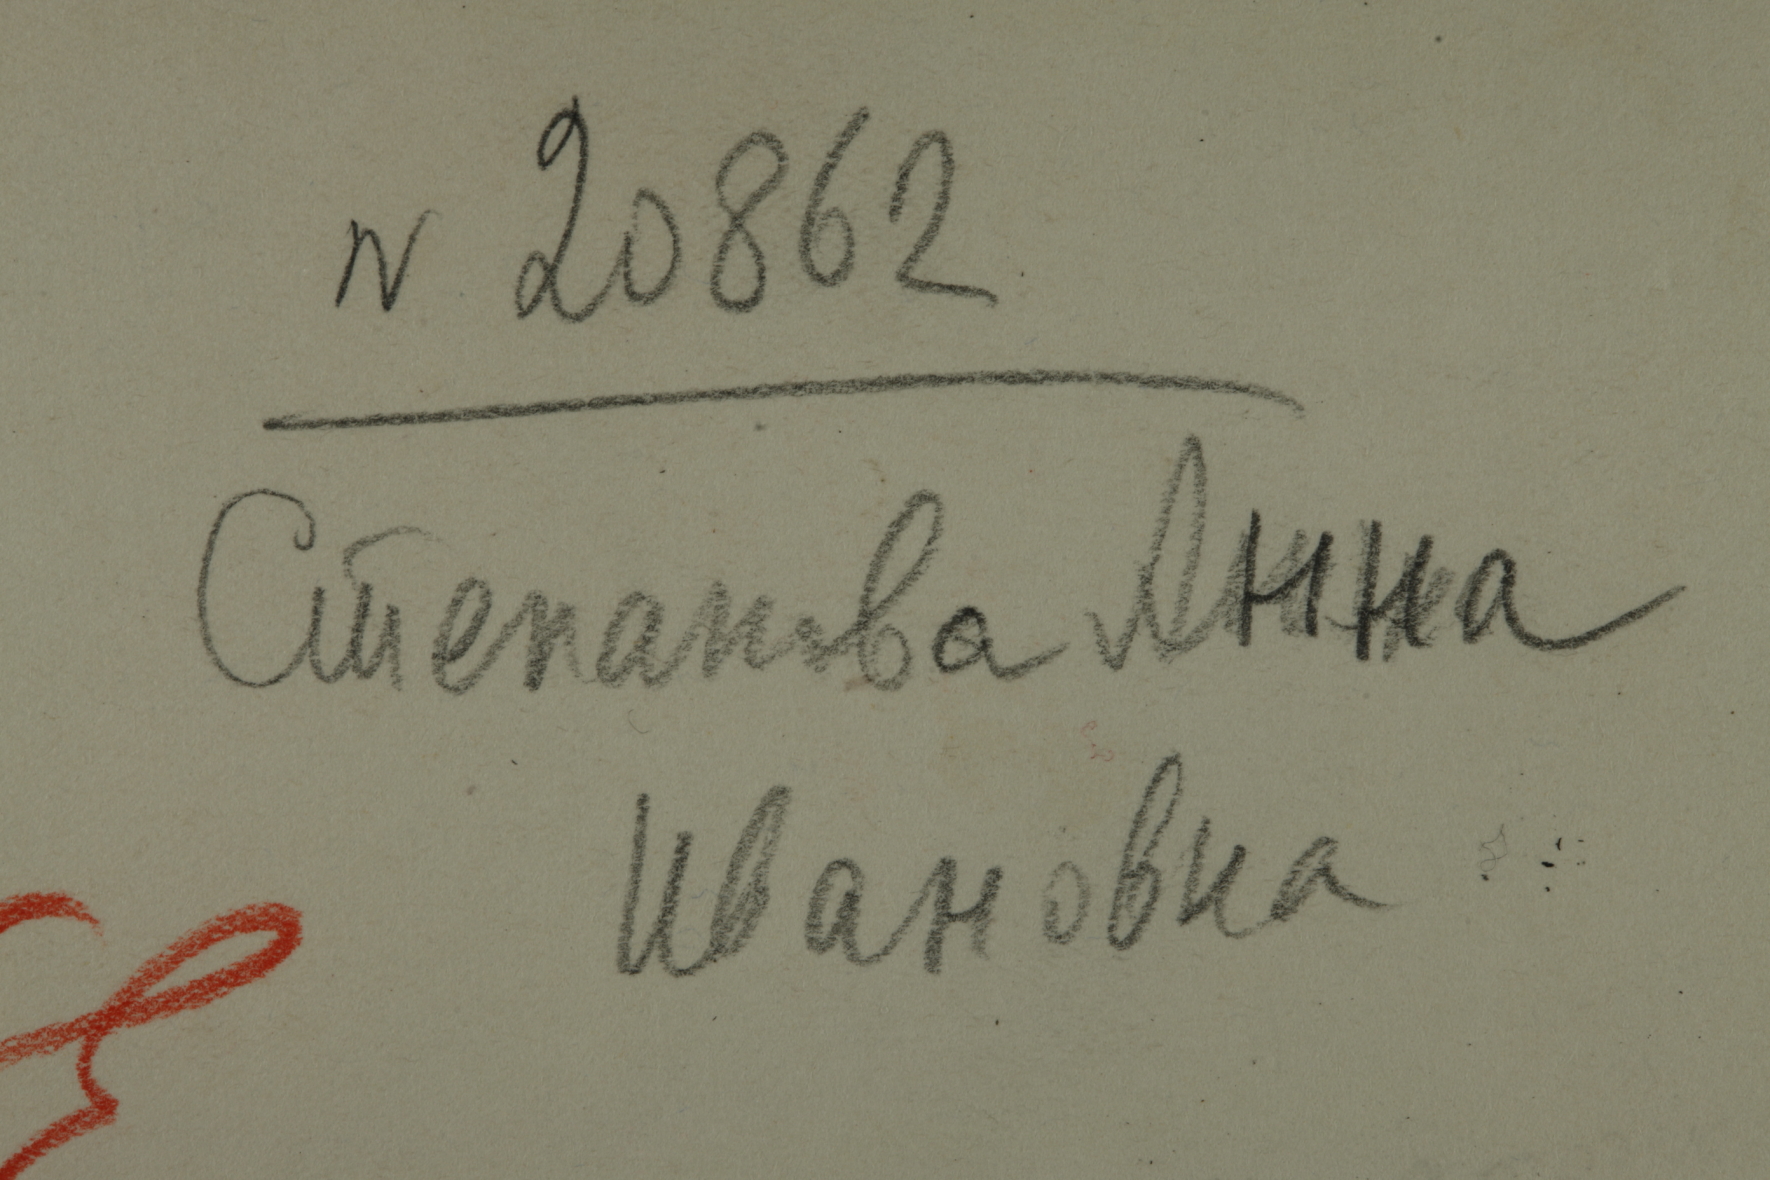 N 20862
Степанова Анна
Ивановна